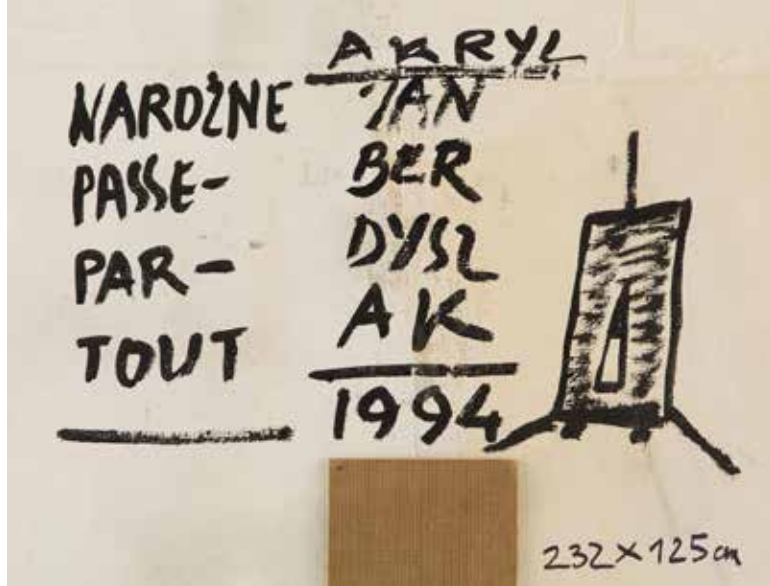 NAROŻNE
PASSE-
PAR-
TOUT
AKRYL
JAN
BER
DYSZ
AK
1994
232×125cm